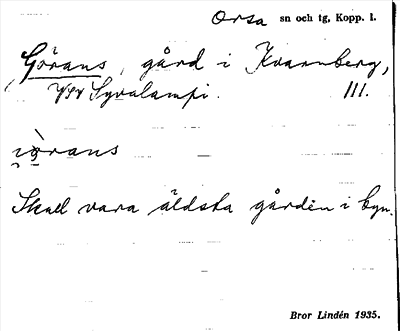 Orsa sn och tg, Kopp. l.
Görans, gård i Kvarnberg,
VSV Syvalampi. III.
i̯ö̀rans
Skall vara äldsta gården i byn.
Bror Lindén 1935.